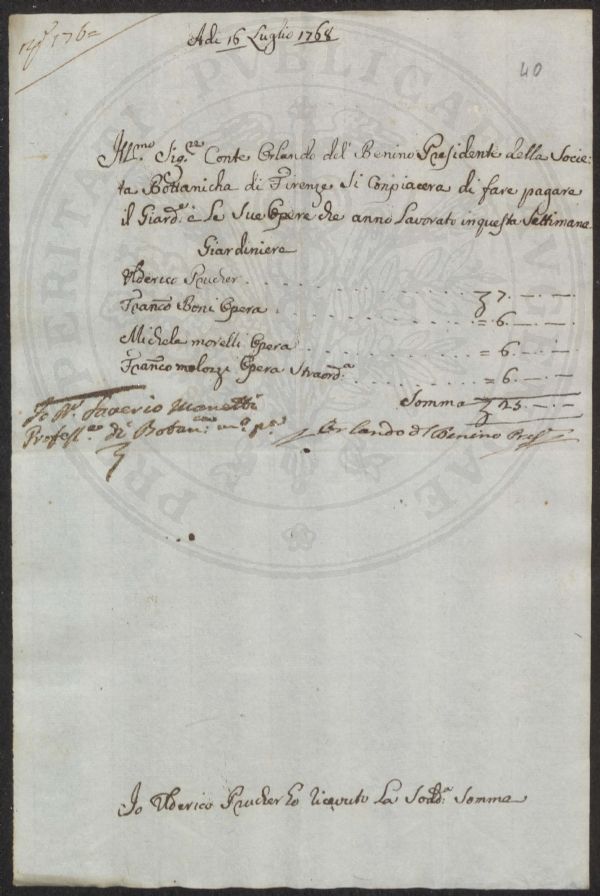 Adi 16 Luglio 1768
40
Ill.mo Sig.re Conte Orlando del Benino Presidente della Socie:
ta Bottanicha di Firenze Si Conpiacera di fare pagare
il Giard.e e Le Sue Opere che anno Lavorato in questa Settimana
Giardiniere
Ulderico Prucher . . . . . . . . . . 7. —.—
Franco Boni Opera . . . . . . . . . = 6. —.—
Michele morelli Opera . . . . . . . = 6. —.—
Franco malozzi Opera Straord.a . . . . = 6. —.—
Somma 25 —.—
Io Dr. Saverio Manetti
Profess.e di Botan.ca m.o p.a
Orlando del Benino Pres.e
Io Ulderico Prucher ho riceuto La Sodd.a Somma
PERITATI PVBLICAE